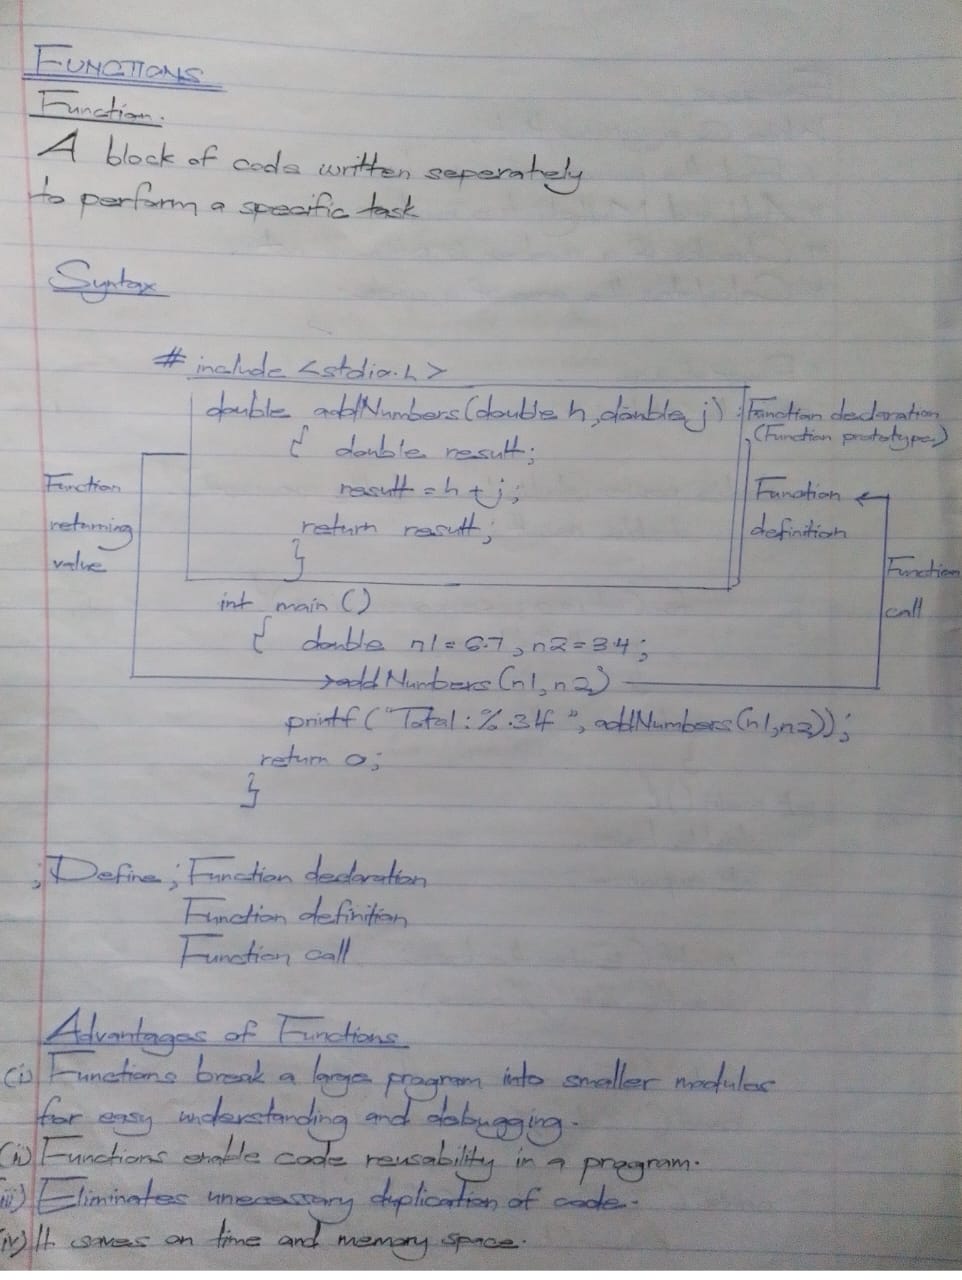 FUNCTIONS
Function.
A block of code written seperately
to perform a specific task
Syntax
# include <stdio.h>
double addNumbers(double h, double j)
Function declaration
(Function prototype)
{ double result;
result = h + j;
return result;
}
Function
returning
value
Function
definition
Function
call
int main ()
{ double n1 = 6.7, n2 = 3.4;
addNumbers(n1, n2)
printf("Total: %.3lf", addNumbers(n1, n2));
return 0;
}
; Define; Function declaration
Function definition
Function call
Advantages of Functions
(i) Functions break a large program into smaller modules
for easy understanding and debugging.
(ii) Functions enable code reusability in a program.
iii) Eliminates unecessary duplication of code.
iv) It saves on time and memory space.